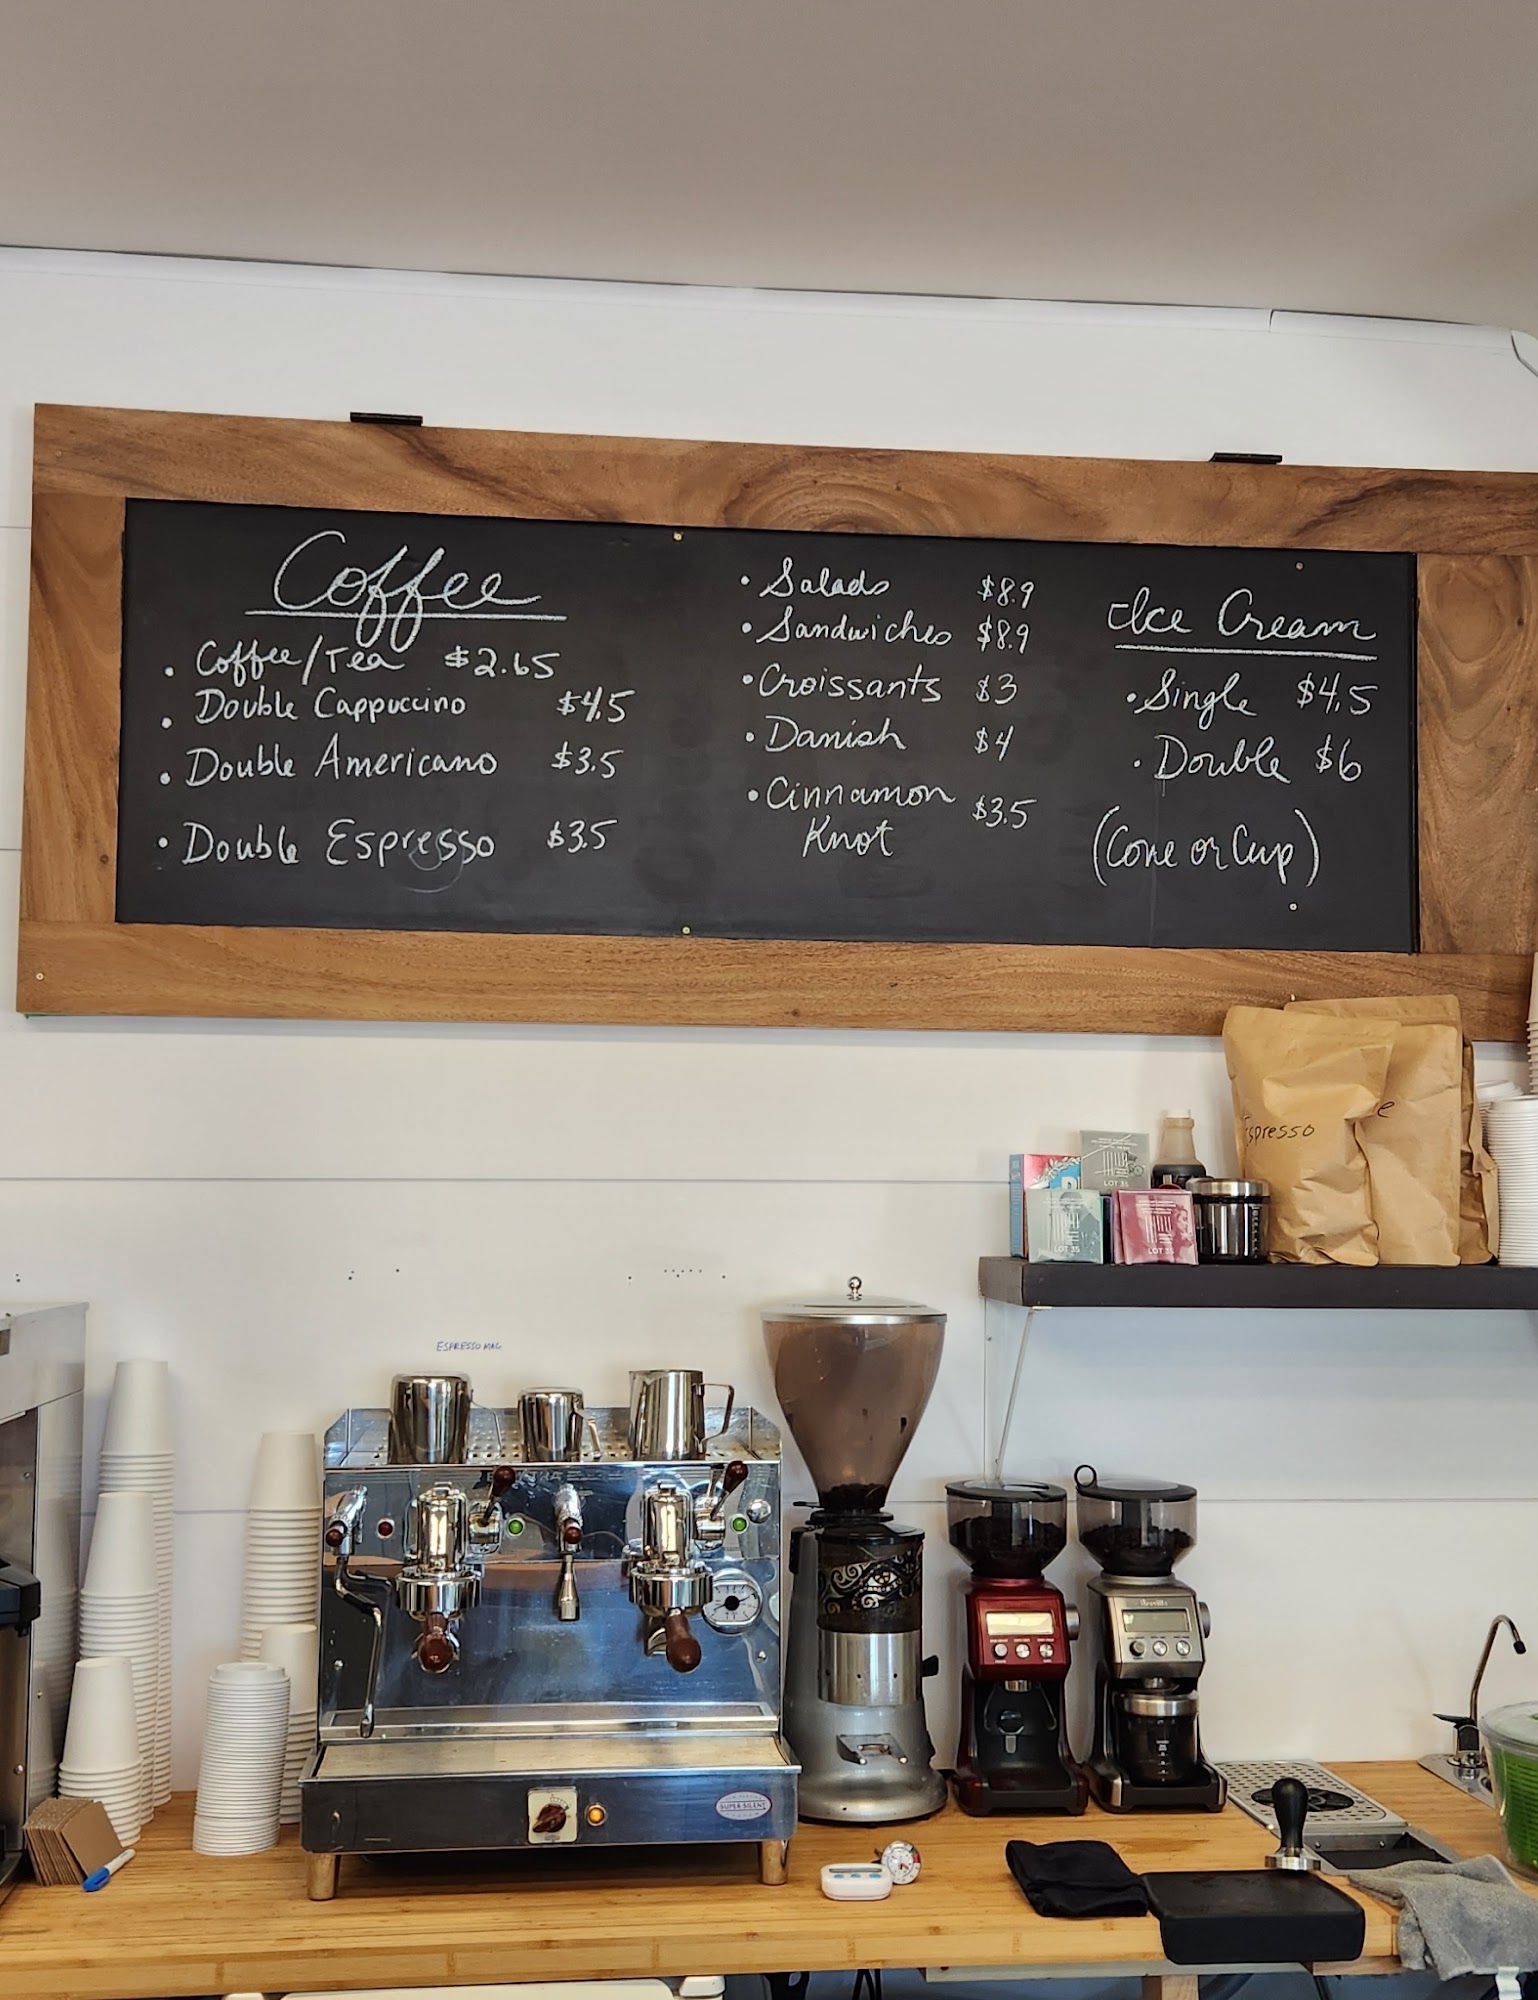 Coffee
• Coffee/Tea $2.65
• Double Cappuccino $4.5
• Double Americano $3.5
• Double Espresso $3.5
• Salads $8.9
• Sandwiches $8.9
• Croissants $3
• Danish $4
• Cinnamon Knot $3.5
Ice Cream
• Single $4.5
• Double $6
(Cone or Cup)
Espresso
e
LOT 35
LOT 35
LOT 35
ESPRESSO MAC
SUPER SILENT
Breville